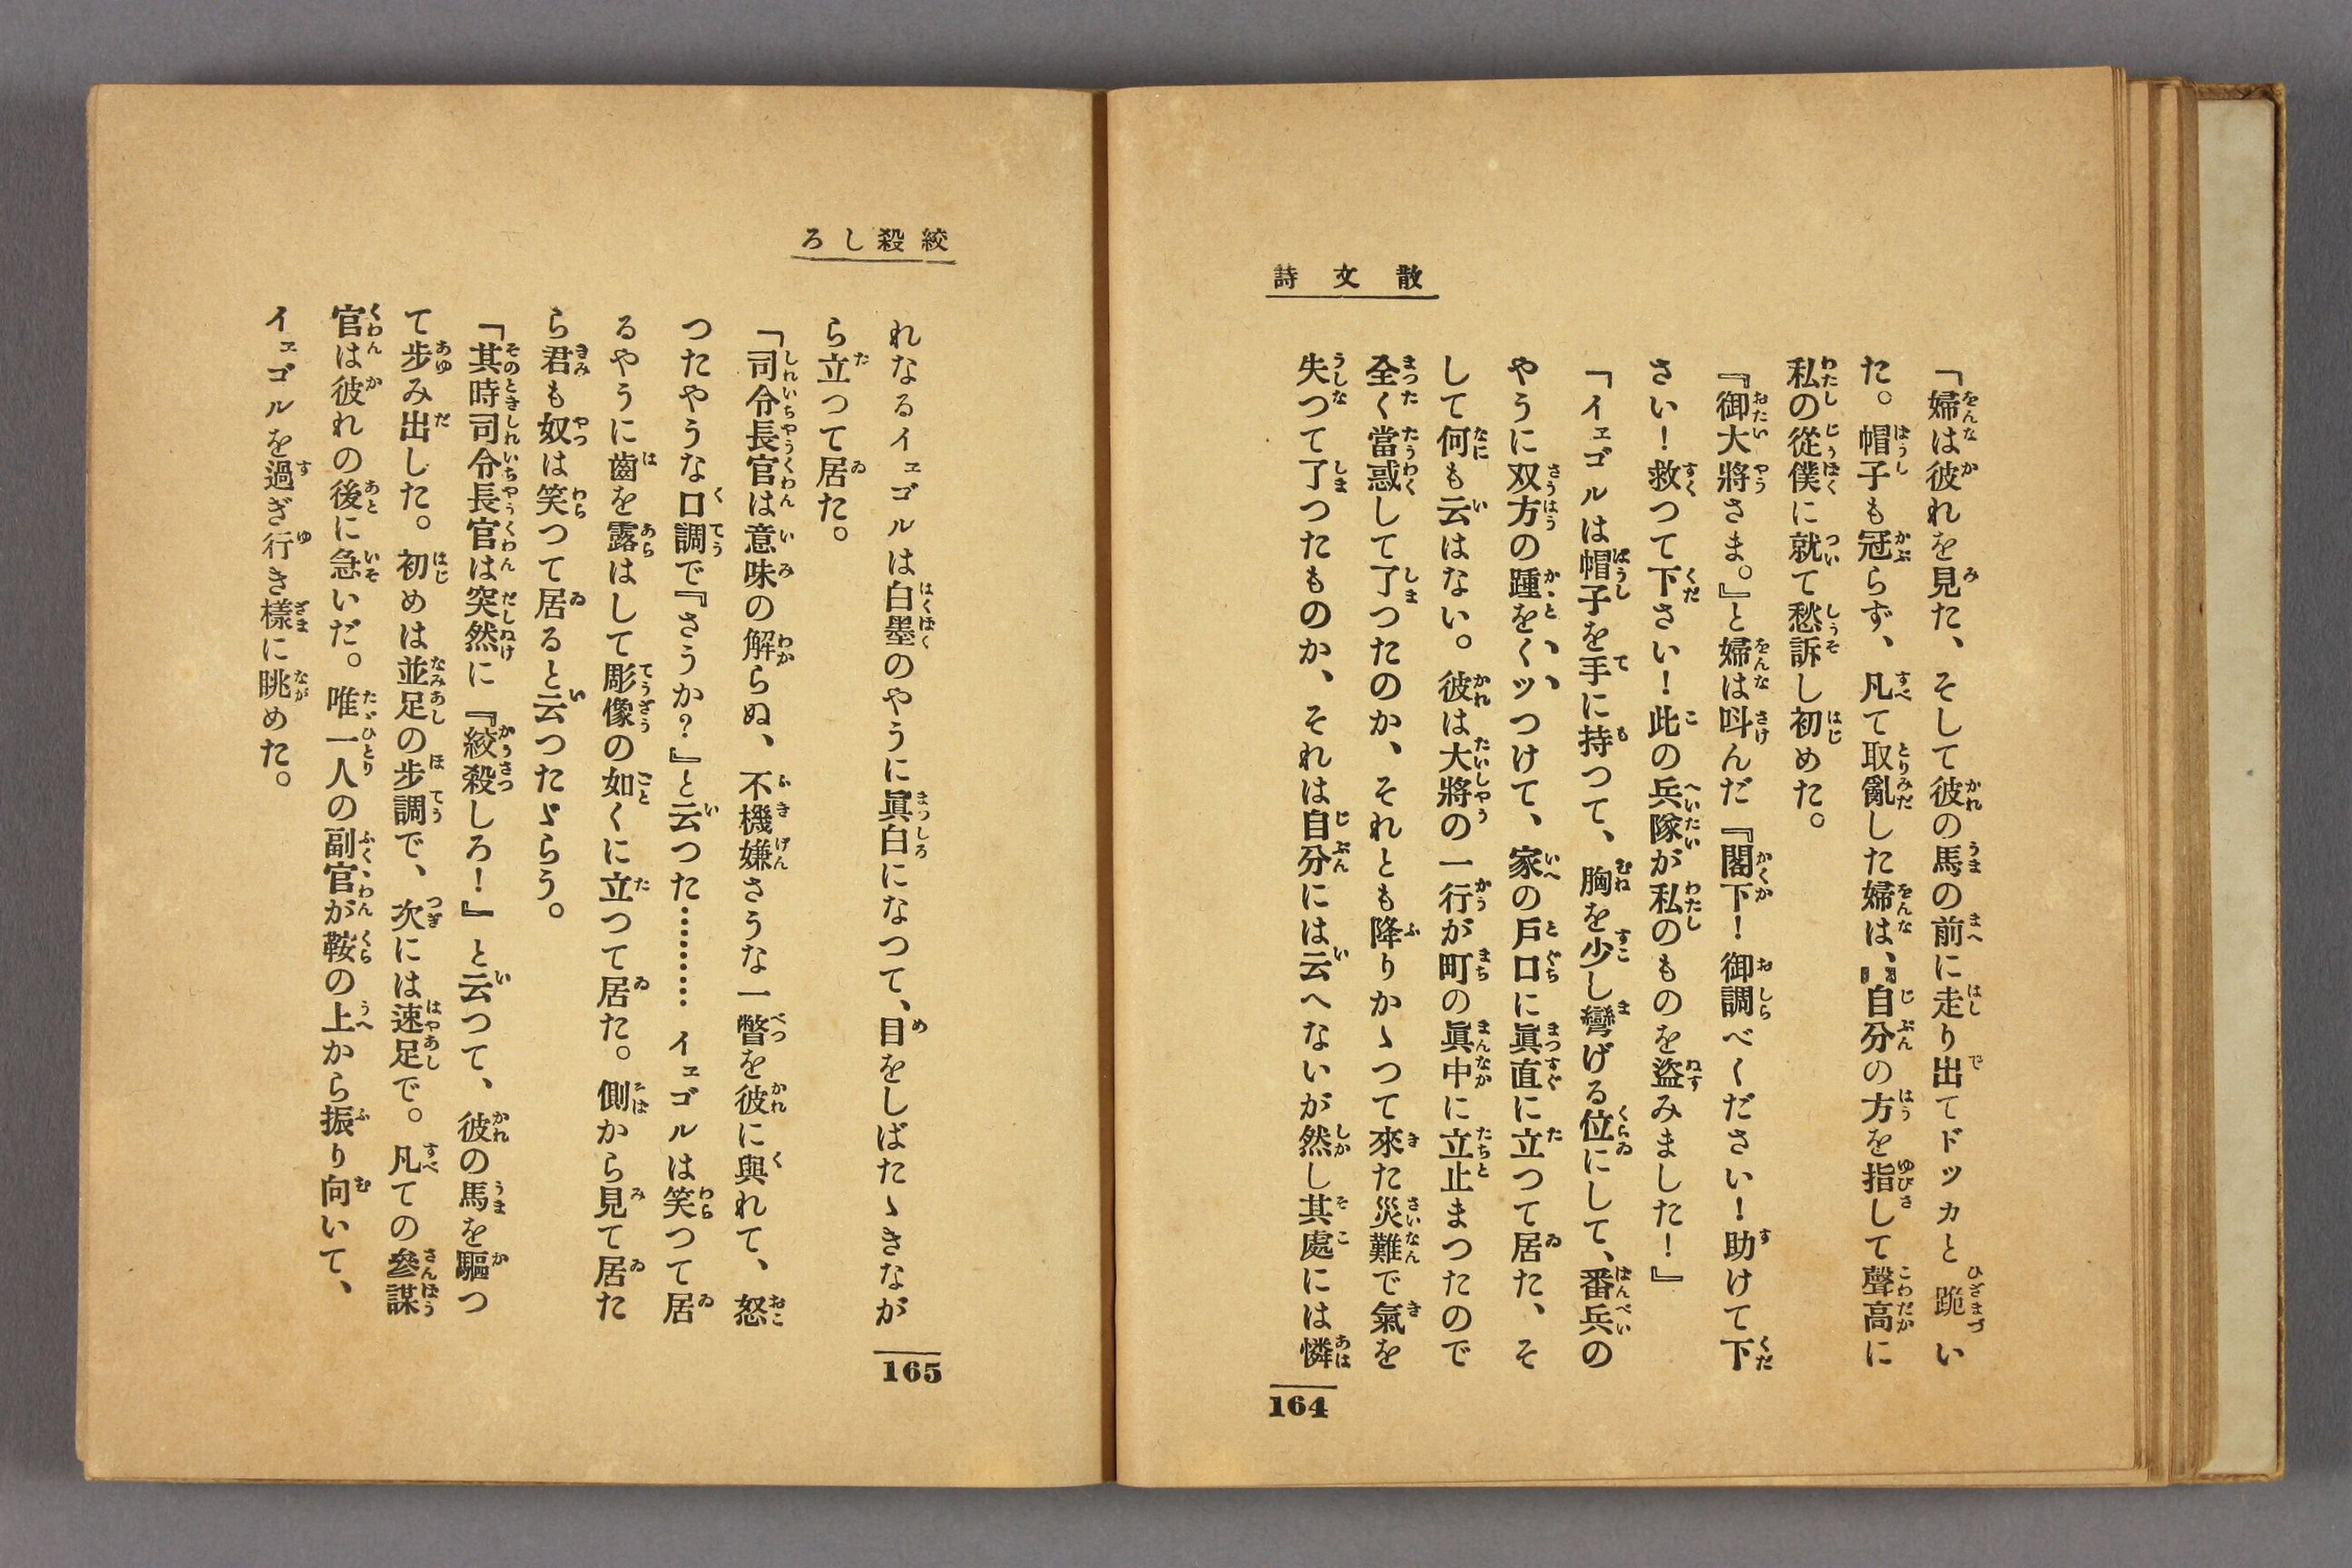 散文詩
「婦は彼れを見た、そして彼の馬の前に走り出てドッカと跪い
た。帽子も冠らず、凡て取亂した婦は、自分の方を指して聲高に
私の從僕に就て愁訴し初めた。
『御大將さま。』と婦は呌んだ『閣下！御調べください！助けて下
さい！救つて下さい！此の兵隊が私のものを盜みました！』
「イェゴルは帽子を手に持つて、胸を少し彎げる位にして、番兵の
やうに双方の踵をくッつけて、家の戸口に眞直に立つて居た、そ
して何も云はない。彼は大將の一行が町の眞中に立止まつたので
全く當惑して了つたのか、それとも降りかゝつて來た災難で氣を
失つて了つたものか、それは自分には云へないが然し其處には憐
164
絞殺しろ
れなるイェゴルは白墨のやうに眞白になつて、目をしばたゝきなが
ら立つて居た。
「司令長官は意味の解らぬ、不機嫌さうな一瞥を彼に與れて、怒
つたやうな口調で『さうか？』と云つた………イェゴルは笑つて居
るやうに齒を露はして彫像の如くに立つて居た。側から見て居た
ら君も奴は笑つて居ると云つたゞらう。
「其時司令長官は突然に『絞殺しろ！』と云つて、彼の馬を驅つ
て步み出した。初めは並足の步調で、次には速足で。凡ての參謀
官は彼れの後に急いだ。唯一人の副官が鞍の上から振り向いて、
イェゴルを過ぎ行き樣に眺めた。
165